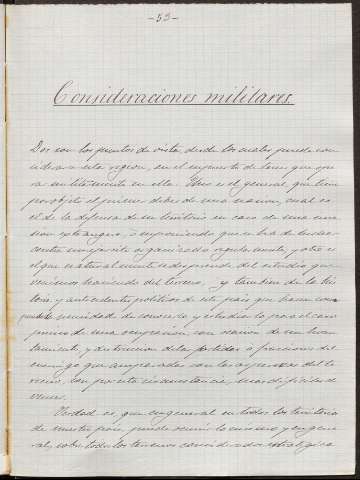 -53-
Consideraciones militares
Dos son los puntos de vista, desde los cuales puede con
siderarse esta region, en el supuesto de tener que ope
rar en ella. Uno es el general, que tiene
por objeto el primer deber de una nacion, cual es
el de la defensa de su territorio en caso de una inva
sion extrangera, suponiendo que se ha de luchar
contra un ejército organizado regularmente, y otro es
el que naturalmente se desprende del estudio que
venimos haciendo del terreno, y tambien de la his
toria, y antecedentes politicos de este pais que hacen
necesidad de conocerlo y estudiarlo para el caso
de una ocupacion, con ocasion de un levan
tamiento, y destruccion de las partidas ó facciones del
enemigo que amparadas con la aspereza del te
rreno, son por esta circunstancia, mas dificiles de
vencer.
Verdad es, que en general en todos los territorios
de nuestro pais, puede ocurrir lo mismo y en gene
ral, sobre todo los terrenos considerados